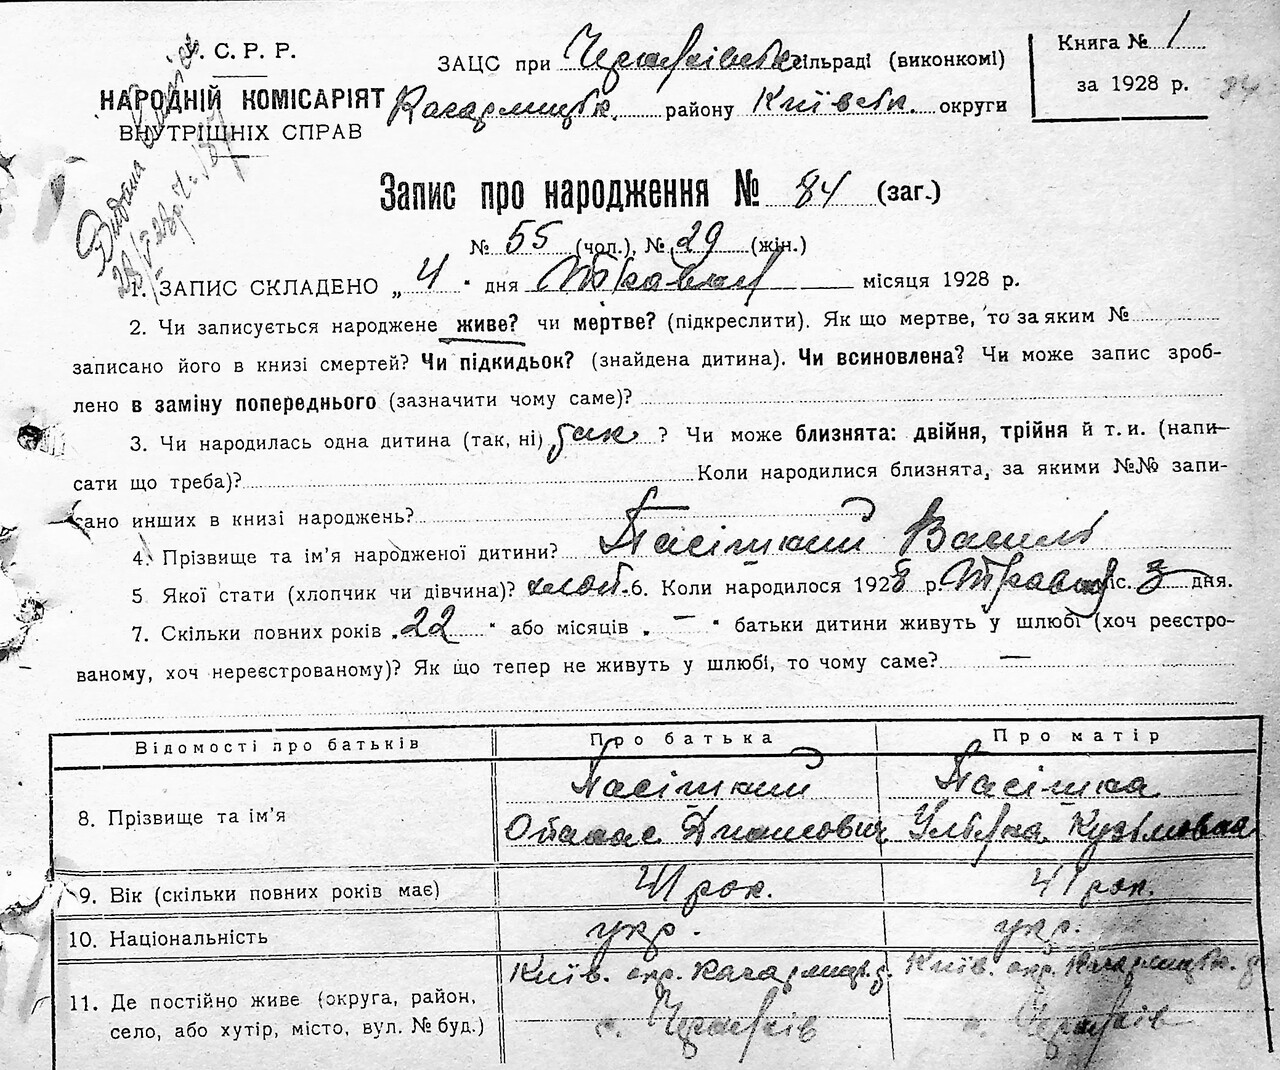 С. Р. Р.
НАРОДНІЙ КОМІСАРІЯТ
ВНУТРІШНІХ СПРАВ
ЗАЦС при Черняхівськ. сільраді (виконкомі)
Кагарлицьк. району Київськ. округи
Книга № 1
за 1928 р.
84
Запис про народження № 84 (заг.)
№ 55 (чол.), № 29 (жін.)
1. ЗАПИС СКЛАДЕНО „ 4 " дня Травня місяця 1928 р.
2. Чи записується народжене живе? чи мертве? (підкреслити). Як що мертве, то за яким №
записано його в книзі смертей? Чи підкидьок? (знайдена дитина). Чи всиновлена? Чи може запис зроб-
лено в заміну попереднього (зазначити чому саме)?
3. Чи народилась одна дитина (так, ні) так ? Чи може близнята: двійня, трійня й т. и. (напи-
сати що треба)? Коли народилися близнята, за якими №№ запи-
сано инших в книзі народжень?
4. Прізвище та ім'я народженої дитини? Пасішний Василь
5 Якої стати (хлопчик чи дівчина)? хлоп. 6. Коли народилося 1928 р. Травня міс. 3 дня.
7. Скільки повних років „ 22 " або місяців „ — " батьки дитини живуть у шлюбі (хоч реєстро-
ваному, хоч нереєстрованому)? Як що тепер не живуть у шлюбі, то чому саме? —
Відомості про батьків Про батька Про матір
8. Прізвище та ім'я
Пасішний Пасішна
Опанас Динисович Уляна Кузьмовна
9. Вік (скільки повних років має) 41 рок. 41 рок.
10. Національність укр. укр.
11. Де постійно живе (округа, район,
село, або хутір, місто, вул. № буд.)
Київ. окр. Кагарлицьк. р. Київ. окр. Кагарлицьк. р.
с. Черняхів с. Черняхів